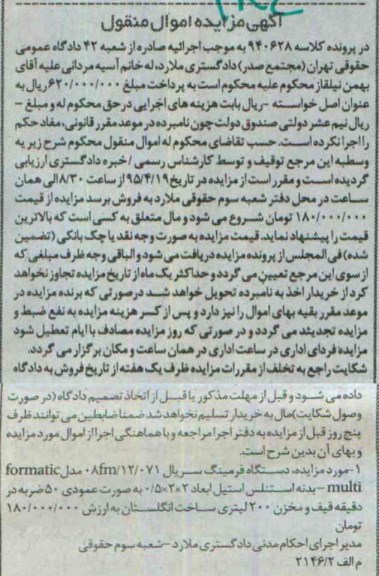 آگهی مزایده اموال منقول
در پرونده کلاسه ۹۴۰۶۲۸ به موجب اجرائیه صادره از شعبه ۴۲ دادگاه عمومی
حقوقی تهران (مجتمع صدر) دادگستری ملارد، له خانم آسیه مردانی علیه آقای
بهمن نیلقاز محکوم علیه محکوم است به پرداخت مبلغ ۶۲۰/۰۰۰/۰۰۰ ریال به
عنوان اصل خواسته – ریال بابت هزینه های اجرایی در حق محکوم له و مبلغ –
ریال نیم عشر دولتی صندوق دولت چون نامبرده در موعد مقرر قانونی، مفاد حکم
را اجرا نکرده است. حسب تقاضای محکوم له اموال منقول محکوم شرح زیر به
وسطبه این مرجع توقیف و توسط کارشناس رسمی / خبره دادگستری ارزیابی
گردیده است و مقرر است از مزایده در تاریخ ۹۵/۴/۱۹ از ساعت ۸/۳۰ الی همان
ساعت در محل دفتر شعبه سوم حقوقی ملارد به فروش برسد مزایده از قیمت
۱۸۰/۰۰۰/۰۰۰ تومان شروع می شود و مال متعلق به کسی است که بالاترین
قیمت را پیشنهاد نماید. قیمت مزایده به صورت وجه نقد یا چک بانکی (تضمین
شده) فی المجلس از پرونده مزایده دریافت می شود و الباقی وجه ظرف مبلغی که
از سوی این مرجع تعیین می گردد و حداکثر یک ماه از تاریخ مزایده تجاوز نخواهد
کرد از خریدار اخذ به نامبرده تحویل خواهد شد در صورتی که برنده مزایده در
موعد مقرر بقیه بهای اموال را نیز دارد و پس از کسر هزینه مزایده به نفع ضبط و
مزایده تجدید می گردد و در صورتی که روز مزایده مصادف با ایام تعطیل شود
مزایده فردای اداری در ساعت اداری در همان ساعت و مکان برگزار می گردد.
شکایت راجع به تخلف از مقررات مزایده ظرف یک هفته از تاریخ فروش به دادگاه
داده می شود و قبل از مهلت مذکور یا قبل از اتخاذ تصمیم دادگاه (در صورت
وصول شکایت) مال به خریدار تسلیم نخواهد شد ضمنا ضابطین می توانند ظرف
پنج روز قبل از مزایده به دفتر اجرا مراجعه و با هماهنگی اجرا از اموال مورد مزایده
و بهای آن بدین شرح است.
۱-مورد مزایده، دستگاه فرمینگ سریال ۰۸fm/۱۲/۰۷۱ مدل formatic
multi – بدنه استنلس استیل ابعاد ۲×۲×۰/۵ به صورت عمودی ۵۰ ضربه در
دقیقه قیف و مخزن ۲۰۰ لیتری ساخت انگلستان به ارزش ۱۸۰/۰۰۰/۰۰۰
تومان
مدیر اجرای احکام مدنی دادگستری ملارد – شعبه سوم حقوقی
م الف ۲۱۴۶/۲